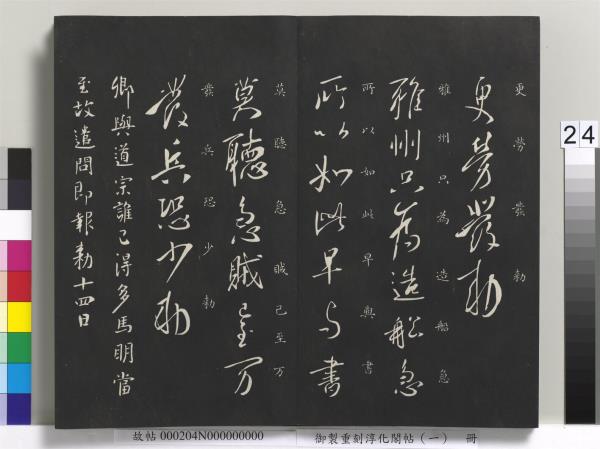 更勞發勅
更勞發勅
雍州只為造船急
雍州只為造船急
所以如此早與書
所以如此早與書
莫聽急賊已至万
莫聽急賊已至万
發兵恐少勅
發兵恐少勅
卿與道宗誰已得多馬明當
至故遣問即報勅十四日
24
故帖 000204N000000000
御製重刻淳化閣帖（一） 冊